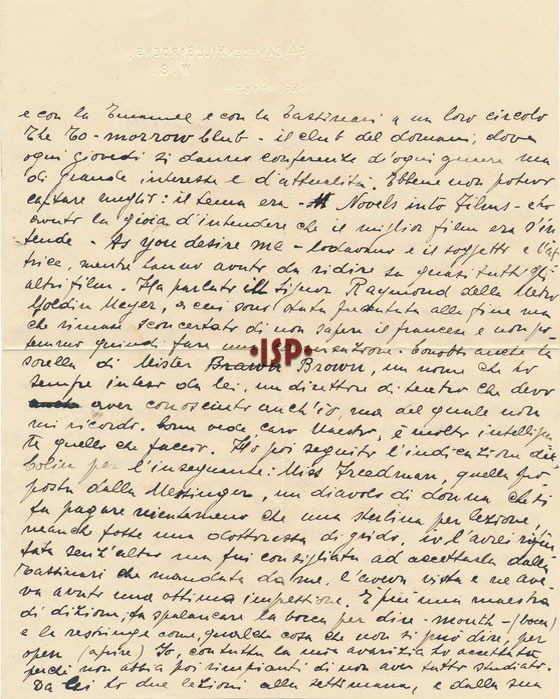 e con la Emanuel e con la Tattinari a un loro circolo
The To-morrow Club - il club del domani, dove
ogni giovedi si danno conferenze d'ogni genere ma
di grande interesse e d'attualità. Ebbene non potevo
capitare meglio: il tema era - Novels into Films - e ho
avuto la gioia d'intendere che il miglior film era s'in
tende - As you desire me - lodavano e il soggetto e l'at
trice, mentre hanno avuto da ridire su quasi tutti gli
altri film. Ha parlato il signor Raymond della Metro
Goldin Meyer, a cui sono stata presentata alla fine ma
che rimase sconcertato di non sapere il francese e non po
temmo quindi fare una
·ISP·
Conobbi anche la
sorella di Mister Brown, un nome che ho
sempre inteso da lei, un direttore di teatro che devo
aver conosciuto anch'io, ma del quale non
mi ricordo. Come vede caro Maestro, è molto intelligen
te quello che faccio. Ho poi seguito l'indicazione di
Colin per l'insegnante: Miss Freedman, quella pro
posta dalla Messinger, un diavolo di donna che si
fa pagare nientemeno che una sterlina per lezione,
neanch fosse una dottoressa di grido, io l'avrei rifiu
tata senz'altro ma fui consigliata ad accettarla dalla
Tattinari che mandata da me, l'aveva vista e ne ave-
va avuto una ottima impressione. È più una maestra
di dizione, fa spalancare la bocca per dire - mouth - (bocca)
e la restringe come, qualche cosa che non si può dire, per
open (aprire) Io, con tutta la mia avarizia ho accettato
perché non abbia poi rimpianti di non aver tutto studiato.
Da lei ho due lezioni alla settimana, e dalla sua